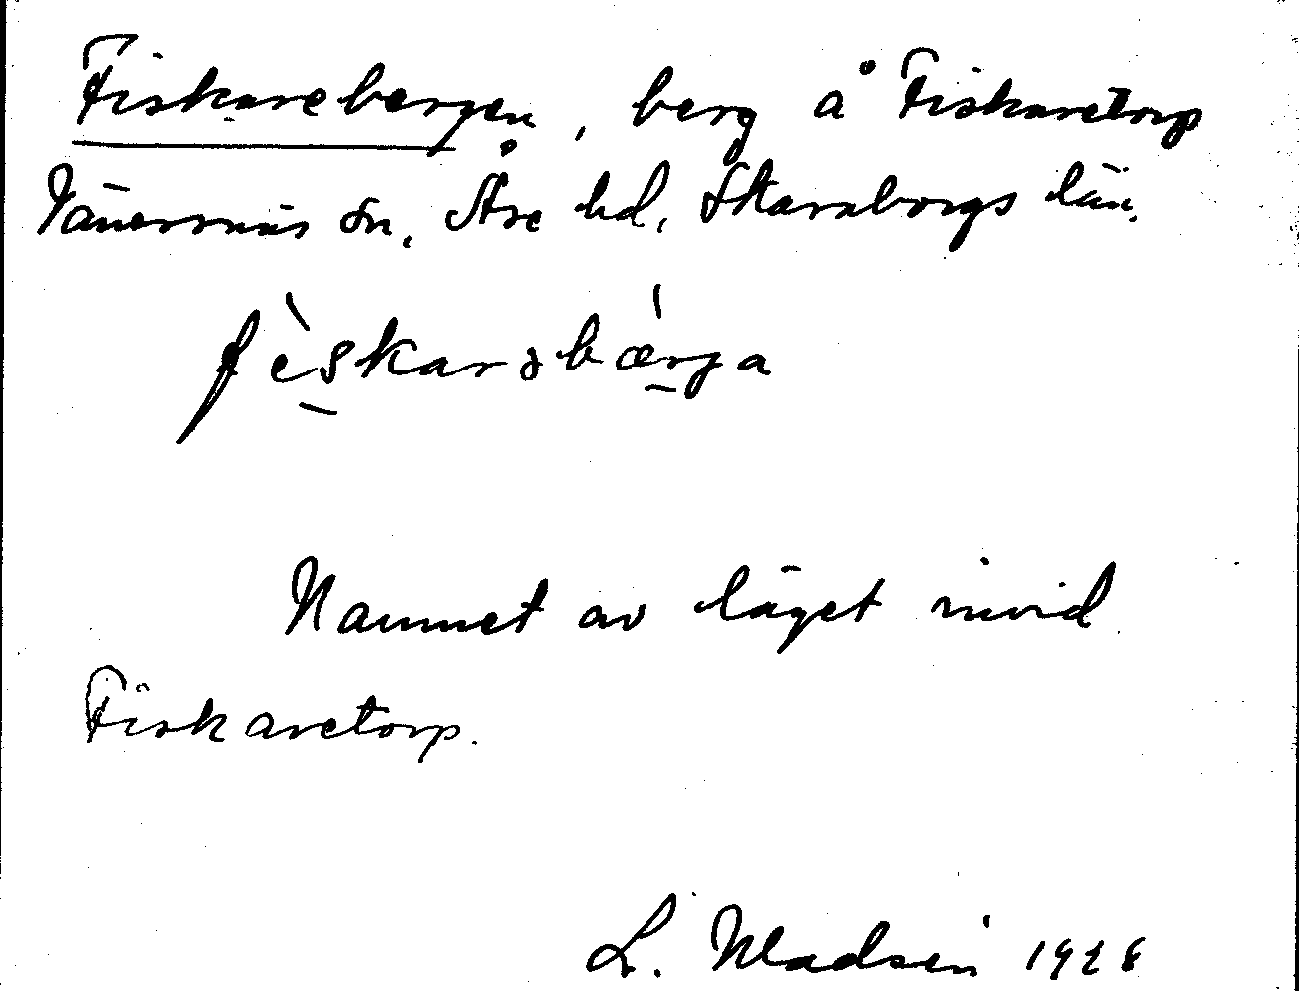 Fiskarebergen, berg å Fiskaretorp
Vänersnäs sn, Åse hd, Skaraborgs län.
fèskarəbærja
Namnet av läget invid
Fiskaretorp.
L. Madsén 1928